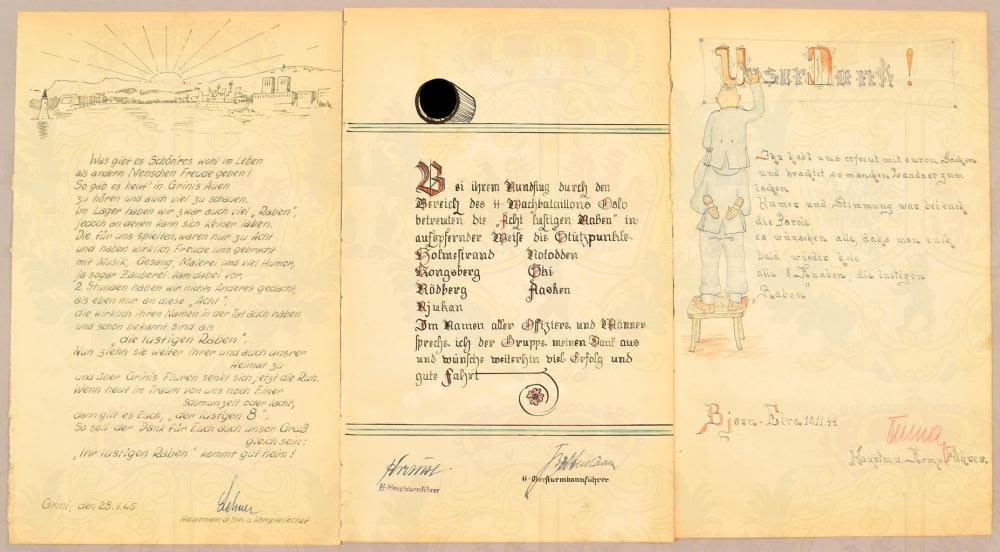 Was gibt es Schön'res wohl im Leben
als andern Menschen Freude geben!
So gab es heut' in Grinis Auen
zu hören und auch viel zu schauen.
Im Lager haben wir zwar auch viel „Raben",
jedoch an denen kann sich keiner laben.
Die für uns spielten, waren nur zu Acht
und haben wirklich Freude uns gebracht
mit Musik, Gesang, Malerei und viel Humor,
ja sogar Zauberei kam dabei vor.
2 Stunden haben wir nichts Anderes gedacht,
als eben nur an diese „Acht",
die wirklich ihren Namen in der Tat auch haben
und schon bekannt sind als
die lustigen Raben".
Nun zieh'n sie weiter ihrer und auch unsrer
Heimat zu
und über Grinis Fluren senkt sich jetzt die Ruh.
Wenn heut im Traum von uns noch Einer
schmunzelt oder lacht,
dann gilt es Euch, „der lustgen 8".
So soll der Dank für Euch auch unser Gruß
gleich sein:
„Ihr lustigen Raben" kommt gut heim!
Grini, den 28.1.45
Hauptmann d. Sch. u. Kompaniechef
Bei ihrem Rundflug durch den
Bereich des SS-Wachbataillons Oslo
betreuten die „Acht lustigen Raben" in
aufopfernder Weise die Stützpunkte
Holmestrand Notodden
Kongsberg Ski
Rödberg Aasken
Rjukan
Im Namen aller Offiziere und Männer
spreche ich der Gruppe meinen Dank aus
und wünsche weiterhin viel Erfolg und
gute Fahrt
SS-Hauptsturmführer
SS-Obersturmbannführer
Unser Dank!
Ihr habt uns erfreut mit euren Sachen
und brachtet so manchen Landser zum
lachen
Humor und Stimmung war bei euch
die Parole
es wünschen alle, dahs man euch
bald wieder hole
alle 8 Knaben, die lustigen
„Raben"
Bjorn-Elva 10.11.44
Hauptm. u. Komp. Führer.